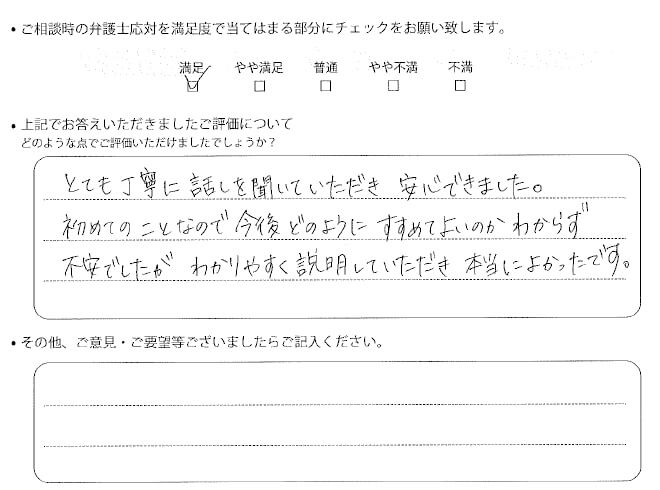 • ご相談時の弁護士応対を満足度で当てはまる部分にチェックをお願い致します。
満足 やや満足 普通 やや不満 不満
☑ □ □ □ □
• 上記でお答えいただきましたご評価について
どのような点でご評価いただけましたでしょうか？
とても丁寧に話しを聞いていただき 安心できました。
初めてのことなので今後どのようにすすめてよいのかわからず
不安でしたが わかりやすく説明していただき 本当によかったです。
• その他、ご意見・ご要望等ございましたらご記入ください。